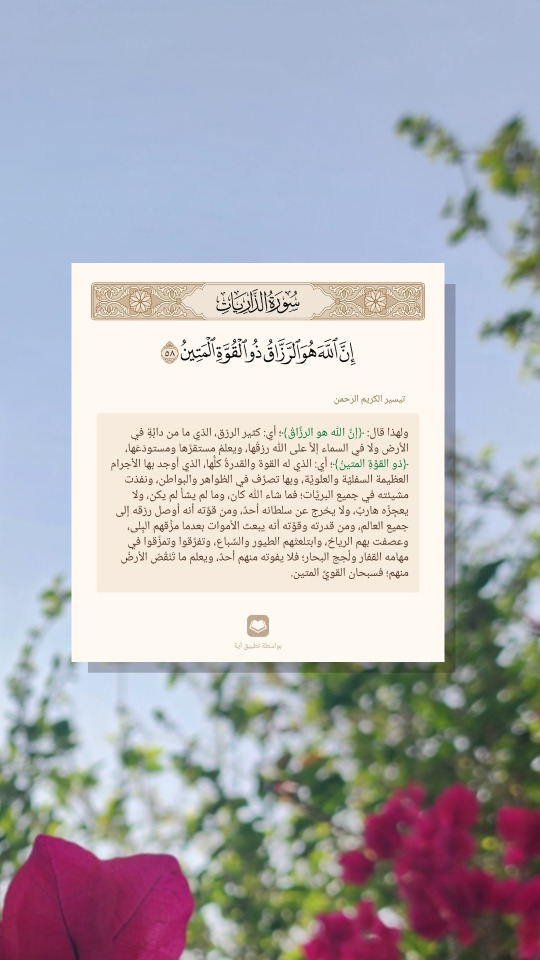 سُورَةُ الذَّارِيَاتِ
إِنَّ ٱللَّهَ هُوَ ٱلرَّزَّاقُ ذُو ٱلْقُوَّةِ ٱلْمَتِينُ ٥٨
تيسير الكريم الرحمن
ولهذا قال: ﴿إنَّ الله هو الرزَّاقُ﴾؛ أي: كثير الرزق، الذي ما من دابَّةٍ في
الأرض ولا في السماء إلاَّ على الله رزقُها، ويعلمُ مستقرَّها ومستودَعَها،
﴿ذو القوَّةِ المتينُ﴾؛ أي: الذي له القوة والقدرةُ كلُّها، الذي أوجد بها الأجرام
العظيمة السفليّة والعلويَّة، وبها تصرَّف في الظواهر والبواطن، ونفذت
مشيئته في جميع البريَّات؛ فما شاء الله كان، وما لم يشأ لم يكن، ولا
يعجِزُه هاربٌ، ولا يخرج عن سلطانه أحدٌ، ومن قوَّته أنه أوصل رزقه إلى
جميع العالم، ومن قدرته وقوَّته أنه يبعث الأموات بعدما مزَّقهم البِلى،
وعصفت بهم الرياح، وابتلعتْهم الطيور والسِّباع، وتفرَّقوا وتمزَّقوا في
مهامه القفار ولُججِ البحار؛ فلا يفوته منهم أحدٌ، ويعلم ما تَنْقُصُ الأرضُ
منهم؛ فسبحان القويِّ المتين.
بواسطة تطبيق آية